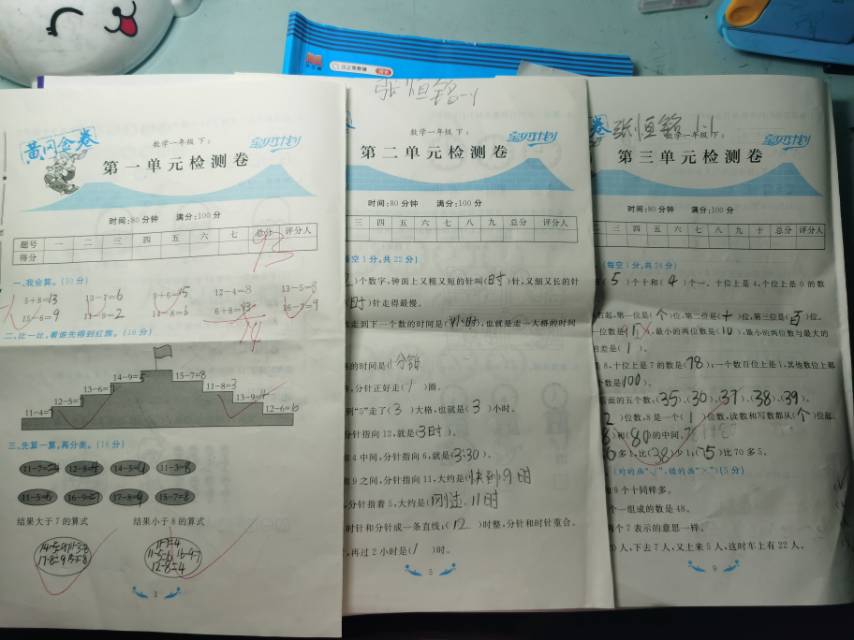 黄冈金卷
数学一年级 下
第一单元检测卷
时间:80分钟 满分:100分
题号 一 二 三 四 五 六 七 总分 评分人
得分
一、我会算。
5+8=13 12-4=8
6+8=13
15-6=9 16-7=9
二、比一比,看谁先得到红旗。
14-9=5 15-7=8
13-6= 11-8=3
12-5= 13-9=4
11-4= 12-6=6
三、先算一算,再分类。
11-7= 12-8= 14-5= 11-3=8
11-5=6 16-9= 17-8= 15-7=8
结果大于7的算式 结果小于8的算式
3
张恒铭
数学一年级 下
第二单元检测卷
时间:80分钟 满分:100分
三 四 五 六 七 八 九 总分 评分人
空1分,共22分)
)个数字,钟面上又粗又短的针叫(时)针,又细又长的针
(时)针走得最慢。
走到下一个数的时间是(1小时),也就是走一大格的时间
的时间是1分钟
,分针正好走(1)圈。
到"5"走了(3)大格,也就是(3)小时。
分针指向12,就是(3时)。
4中间,分针指向6,就是(3:30)。
9之间,分针指向11,大约是(快到9时
,分针指着5,大约是(刚过11时
时针和分针成一条直线,(12)时整,分针和时针重合。
,再过2小时是(1)时。
5
张恒铭 1-1
数学一年级 下
第三单元检测卷
时间:80分钟 满分:100分
三 四 五 六 七 八 九 十 总分 评分人
(每空1分,共24分)
(5)个十和(4)个一,十位上是4,个位上是0的数
起,第一位是(个)位,第二位是(十)位,第三位是(百)位。
一位数是( ),最小的两位数是(10),最小的两位数与最大的
相差是(1)。
8,十位上是7的数是(78);一个数百位上是1,其他数位上都
个数是(100)。
面的五个数,(35)、(30)、(37)、(38)、(39)。
2)位数,8是一个(1)位数,读数和写数都从(个)位起
)和(80的中间。
多1,比(38)少1;(75)比70多5。
(对的画"√",错的画"×")(5分)
和8个十同样多。
个一组成的数是48。
两个7表示的意思一样。
0人,下去7人,又上来5人,这时车上有22人。
9